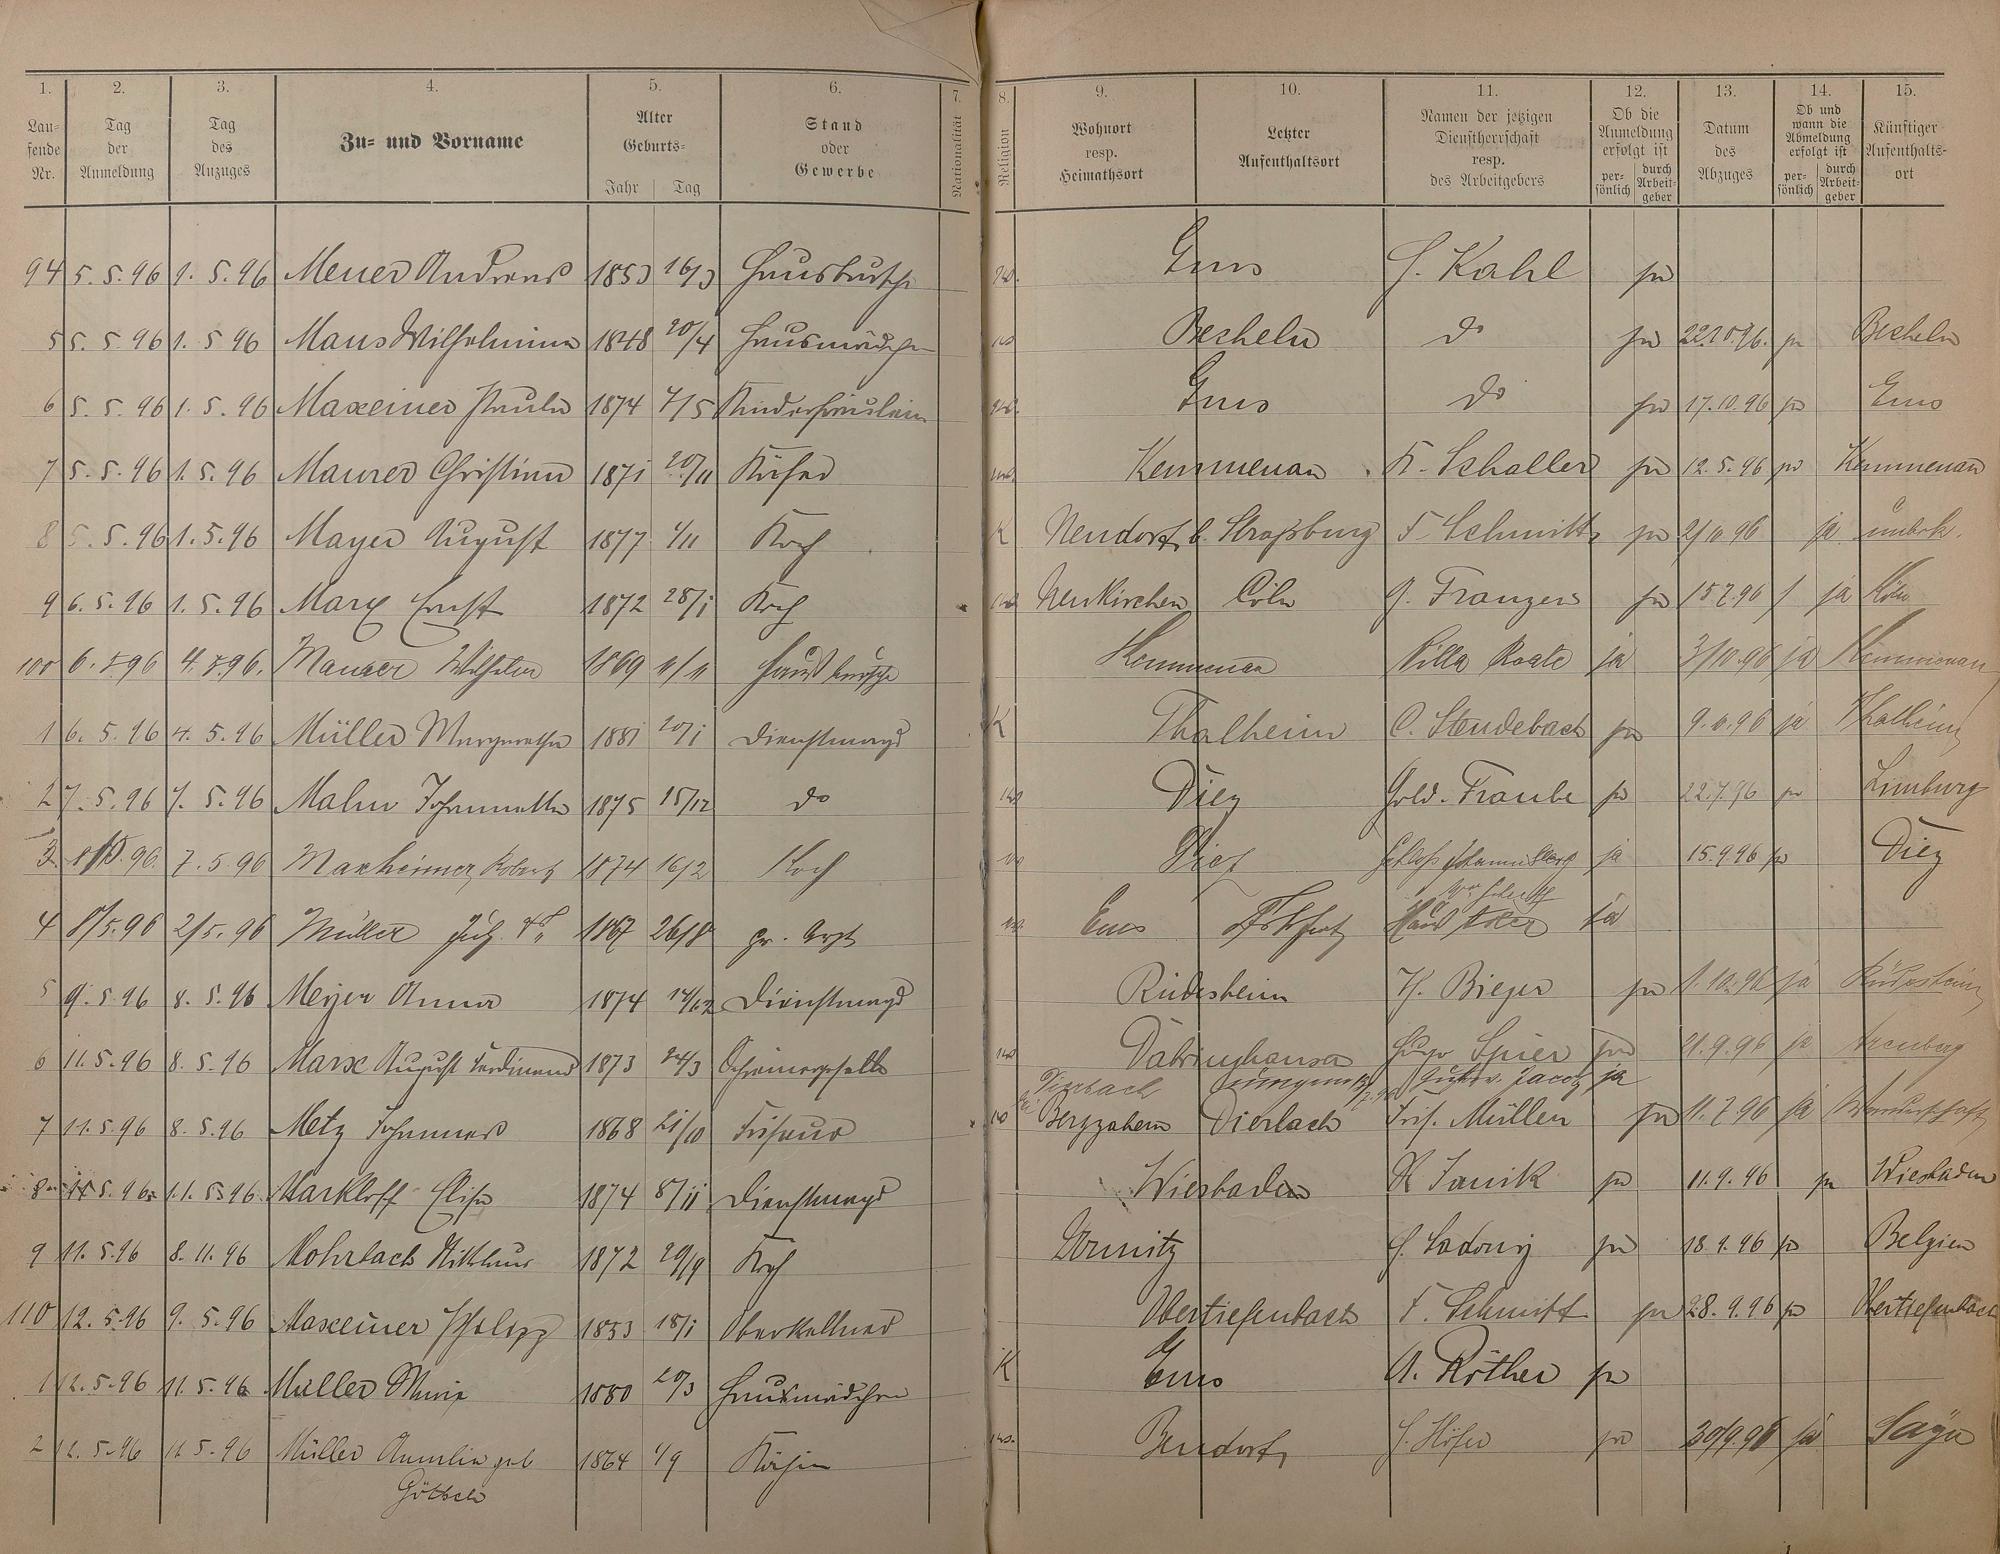 1. 2. 3. 4. 5. 6. 7. 8. 9. 10. 11. 12. 13. 14. 15.
Lau-
fende
Nr.
Tag
der
Anmeldung
Tag
des
Anzuges
Zu- und Vorname
Alter
Geburts-
Jahr Tag
Stand
oder
Gewerbe
Nationalität
Religion
Wohnort
resp.
Heimathsort
Letzter
Aufenthaltsort
Namen der jetzigen
Dienstherrschaft
resp.
des Arbeitgebers
Ob die
Anmeldung
erfolgt ist
per-
sönlich
durch
Arbeit-
geber
Datum
des
Abzuges
Ob und
wann die
Abmeldung
erfolgt ist
per-
sönlich
durch
Arbeit-
geber
Künftiger
Aufenthalts-
ort
94 5. 5. 96 1. 5. 96 Andreas 1853 16/3 Hausbursche Ems Kahl ja
5 5. 5 96 1. 5 96 Maus Wilhelmine 1848 20/4 Hausmädchen Becheln do ja 22.10.96. ja Becheln
6 5. 5. 96 1. 5. 96 Maxeiner Paula 1874 /5 Kinderfräulein Ems do ja 17.10.96 ja Ems
7 5. 5. 96 1. 5. 96 Maurer Christian 1871 20/11 Käfer Kemmenau K. Schaller ja 12. 5. 96 ja Kemmenau
8 5. 5. 96 1. 5. 96 Mayer August 1877 1/11 Koch K Neudorf b. Straßburg F. Schmitt ja 2/10 96 ja unbek.
9 6. 5. 96 1. 5. 96 Marx Ernst 1872 28/1 Koch Neukirchen Cöln Franzen ja 15 7. 96 ja Köln
100 6. 5 96 4. 5. 96. Maurer Wilhelm 1869 11/11 Hausbursche Kemmenau Villa Roate ja 3/10. 96 ja Kemmenau
1 6. 5. 96 4. 5. 96 Müller Margaretha 1881 20/1 Dienstmagd K Thalheim C. Steudebach ja 9. 10. 96 ja Thalheim
2 7. 5. 96 7. 5. 96 Malm Johannette 1875 15/12 do Diez Gold. Traube ja 22. 7. 96 ja Limburg
3 8/5. 96. 7. 5. 96 Maxheimer, Robert 1874 16/2 Koch Diez Schloß Johannisberg ja 15. 9. 96 ja Diez
4 8/5. 96 2/5. 96 Müller Jul. Dr. 1867 26/8 pr. Arzt Ems Haus ja
5 9. 5. 96 8. 5. 96 Meyer Anna 1874 14/12 Dienstmagd Rüdesheim H. Bieger ja 1. 10. 96 ja Rüdesheim
6 11. 5. 96 8. 5. 96 Marx August Ferdinand 1873 24/3 Schreinergeselle Dabringhausen Hugo Spier ja 21. 9. 96 ja Arenberg
Dierbach Jacob ja
7 11. 5. 96 8. 5. 96 Metz Johannes 1868 21/10 Friseur Bergzabern Dierbach Fris. Müller ja 11. 7. 96 ja Wanderschaft
8 11. 5. 96. 11. 5. 96. Markloff Elise 1874 8/11 Dienstmagd Wiesbaden K Janik ja 11. 9. 96 ja Wiesbaden
9 11. 5. 96 8. 11. 96 Mohrbach Nikklaus 1872 29/9 Koch Ladwig ja 18. 9. 96 ja Belgien
110 12. 5. 96 9. 5. 96 Maxeiner Philipp 1853 18/1 Oberkellner Obertiefenbach F. Schmitt ja 28. 9. 96 ja Obertiefenbach
1 12. 5. 96 11. 5. 96 Müller Maria 1880 20/3 Hausmädchen K Ems A. Röther ja
2 12. 5. 96 11. 5. 96 Müller Amalie geb 1864 1/9 Köchin Bendorf Höfer ja 30/9. 96 ja Sayn
Göttsch